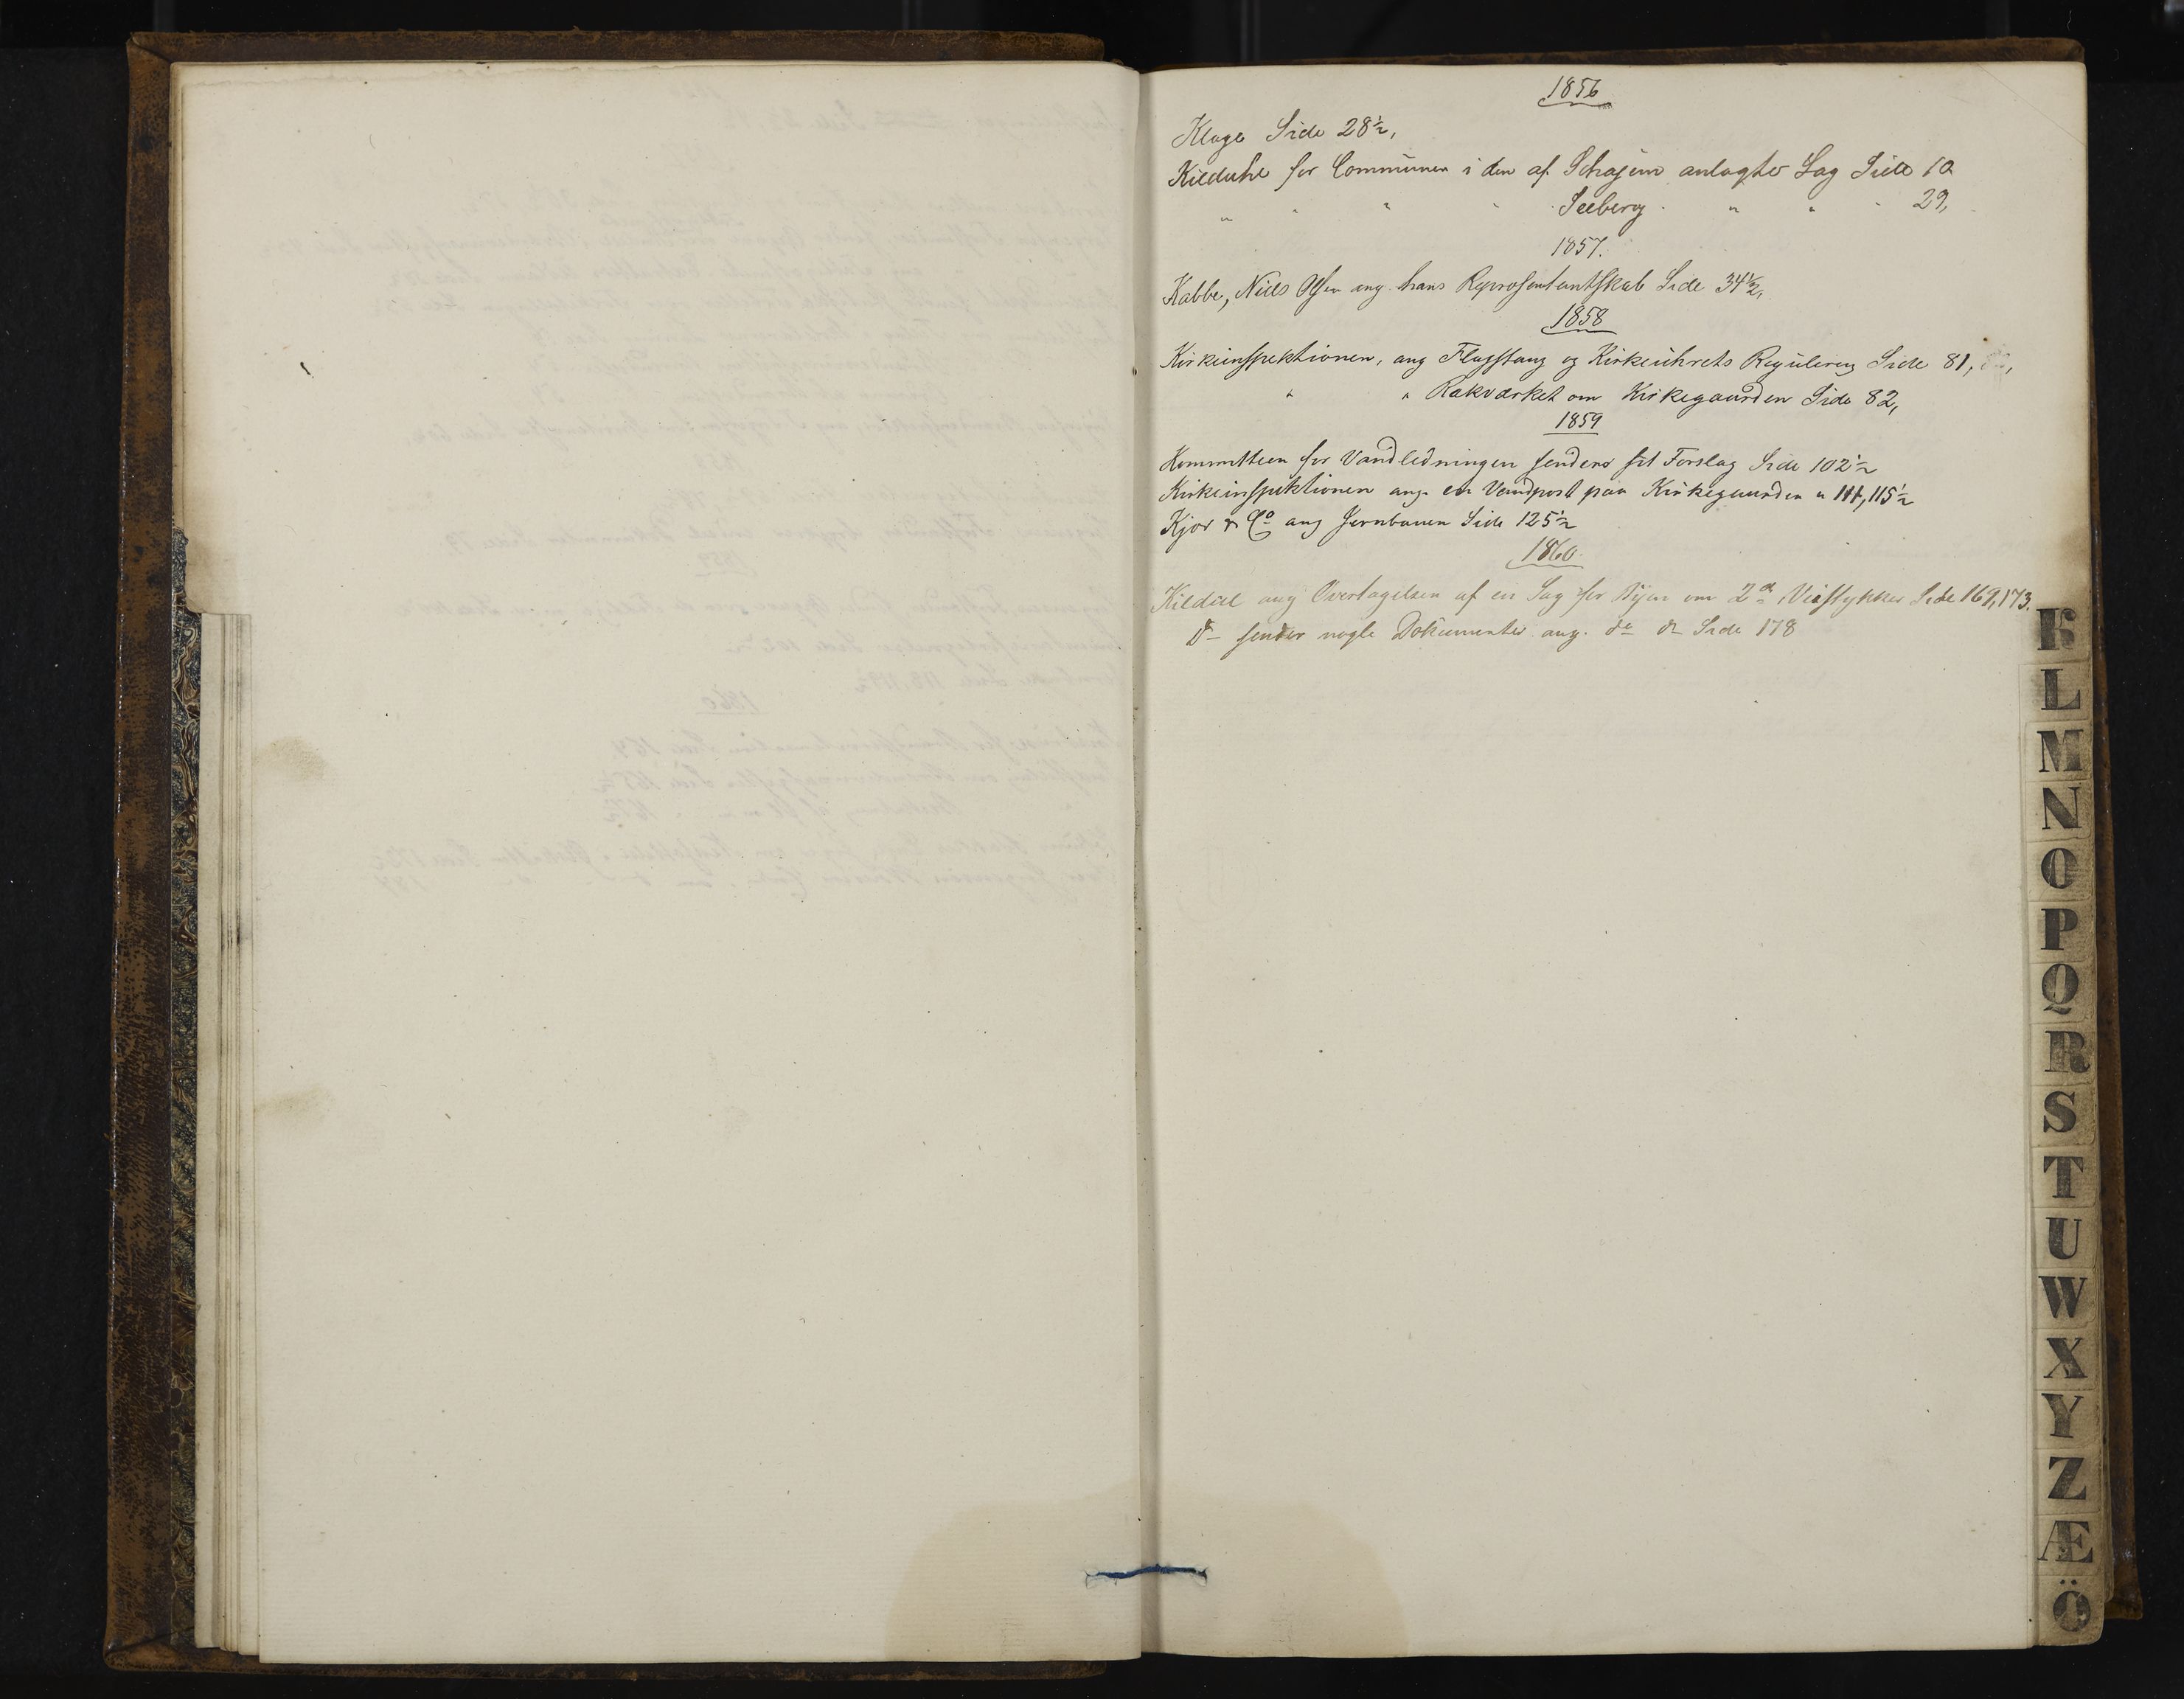 1856
Klage Side 28½,
Kildahl for Communen i den af Schajem anlagte Sag Side 10
" " " " Seeberg " " " 29,
1857.
Kabbe, Niels Olsen ang. hans Repræsentantskab Side 34½,
1858
Kirkeinspektionen, ang Flagstang og Kirkeuhrets Regulering Side 81,
" " Rækværket om Kirkegaarden Side 82,
1859
Kommitteen for Vandledningen sender sit Forslag Side 102½
Kirkeinspektionen ang. en Vandpost paa Kirkegaarden " 111, 115½
Kjør & Co ang Jernbanen Side 125½
1860
Kildal ang Overtagelsen af en Sag for Byen om 2de Veistykker Side 169, 173.
Do sender nogle Dokumenter ang. do do Side 178
K
L
M
N
O
P
Q
R
S
T
U
W
X
Y
Z
Æ
Ö